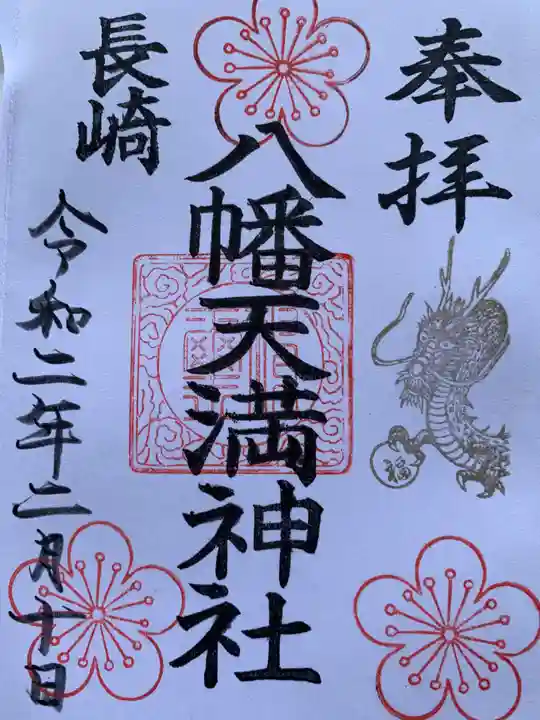 奉拝
福
八幡天満神社
長崎
令和二年二月十日